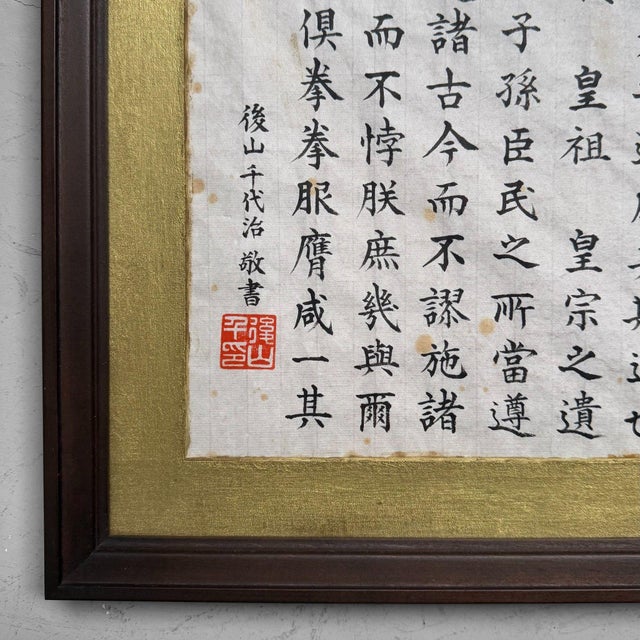 皇祖　皇宗之遺
子孫臣民之所當遵
諸古今而不謬施諸
而不悖朕庶幾與爾
俱拳拳服膺咸一其
後山千代治 敬書
後山